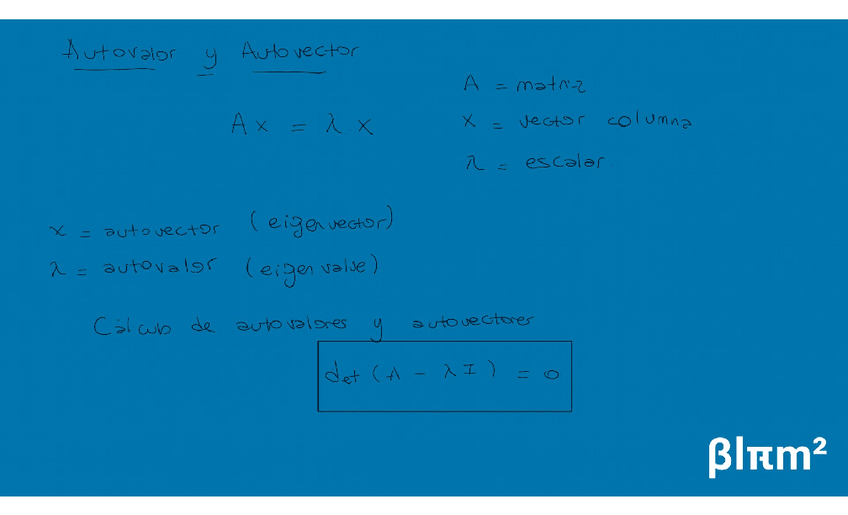 Autovalor y Autovector
A = matriz
Ax = λx
x = vector columna
λ = escalar
x = autovector (eigenvector)
λ = autovalor (eigenvalue)
Cálculo de autovalores y autovectores
det (A - λI) = 0
βlπm²